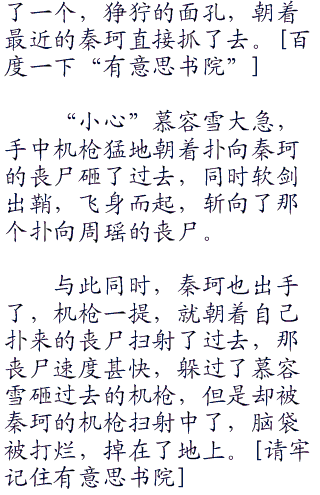 了一个，狰狞的面孔，朝着
最近的秦珂直接抓了去。[百
度一下“有意思书院”]
“小心”慕容雪大急，
手中机枪猛地朝着扑向秦珂
的丧尸砸了过去，同时软剑
出鞘，飞身而起，斩向了那
个扑向周瑶的丧尸。
与此同时，秦珂也出手
了，机枪一提，就朝着自己
扑来的丧尸扫射了过去，那
丧尸速度甚快，躲过了慕容
雪砸过去的机枪，但是却被
秦珂的机枪扫射中了，脑袋
被打烂，掉在了地上。[请牢
记住有意思书院]